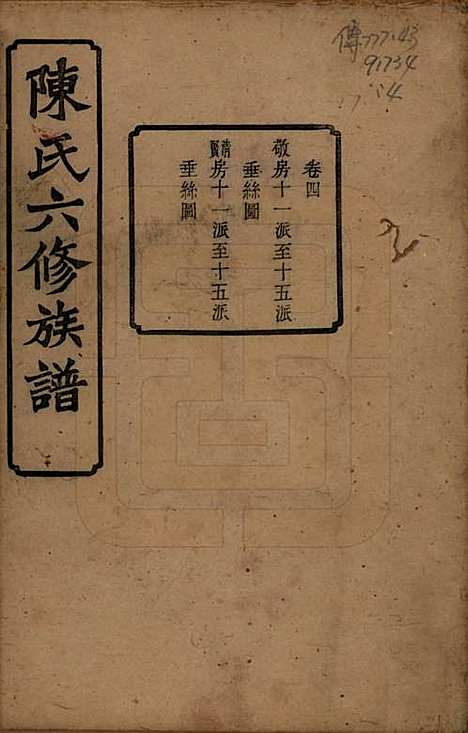 陳氏六修族譜
卷四
敬房十一派至十五派
垂絲圖
房十一派至十五派
垂絲圖
傳777.43
91734
14